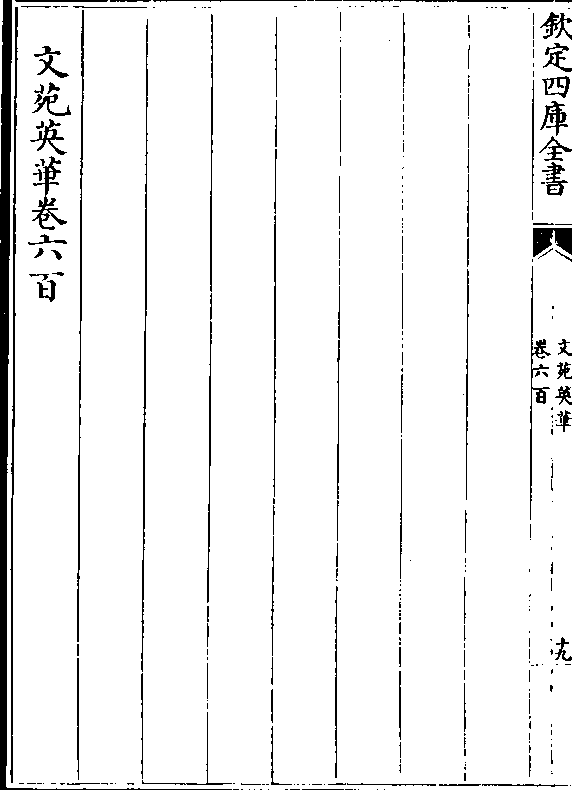 欽定四庫全書
文苑英華
卷六百
十九
文苑英華卷六百